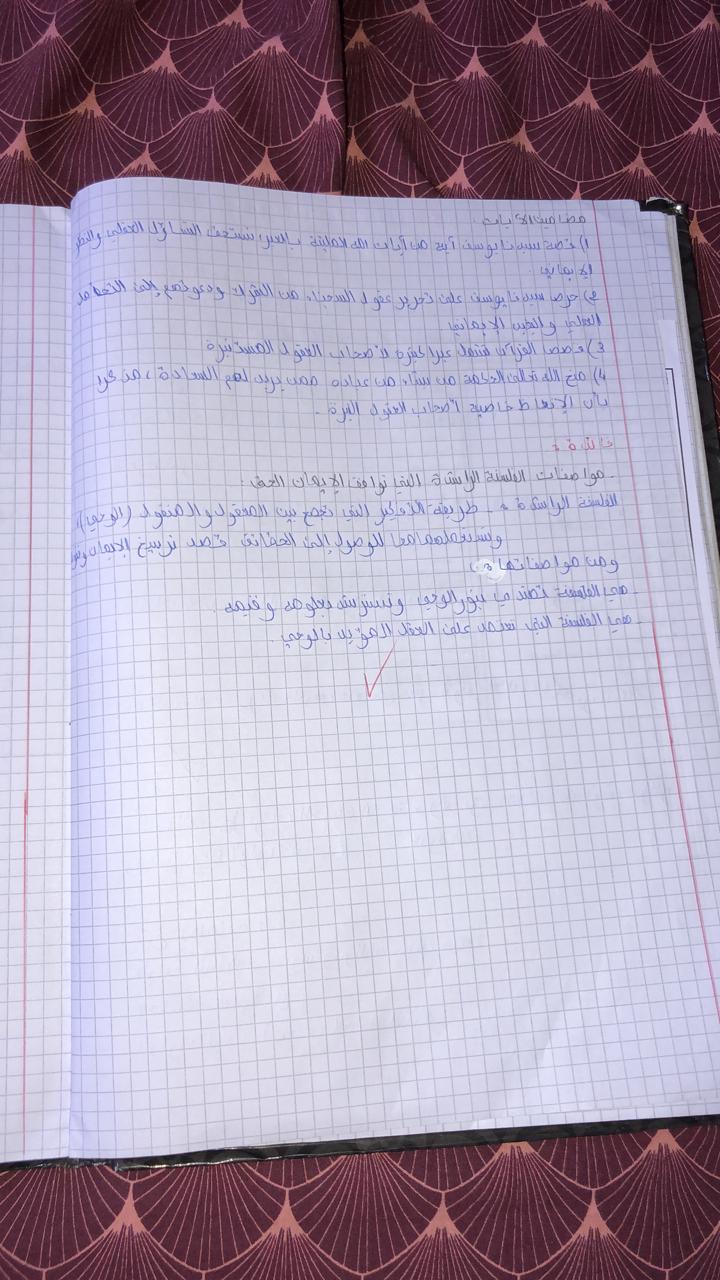 مضامين الآيات:
1) قصة سيدنا يوسف آية من آيات الله المليئة بالعبر، تستحث التساؤل العقلي والنظر
الإيماني.
2) حرص سيدنا يوسف على تحرير عقول السجناء من الشرك ودعوتهم إلى التفكر
العقلي واليقين الإيماني
3) قصص القرآن تشمل عبرا كثيرة لأصحاب العقول المستنيرة
4) منح الله تعالى الحكمة من يشاء من عباده ممن يريد لهم السعادة، مذكرا
بأن الإتعاظ خاصية أصحاب العقول النيرة.
- مواصفات الفلسفة الراشدة التي توافق الإيمان الحق:
الفلسفة الراشدة: طريقة التفكير التي تجمع بين المعقول والمنقول (الوحي)
وتستعملهما معا للوصول إلى الحقائق قصد ترسيخ الإيمان
ومن مواصفاتها:
- هي الفلسفة تهتدي بنور الوحي وتسترشد بعلومه وقيمه.
- هي الفلسفة التي تعتمد على العقل المؤيد بالوحي.